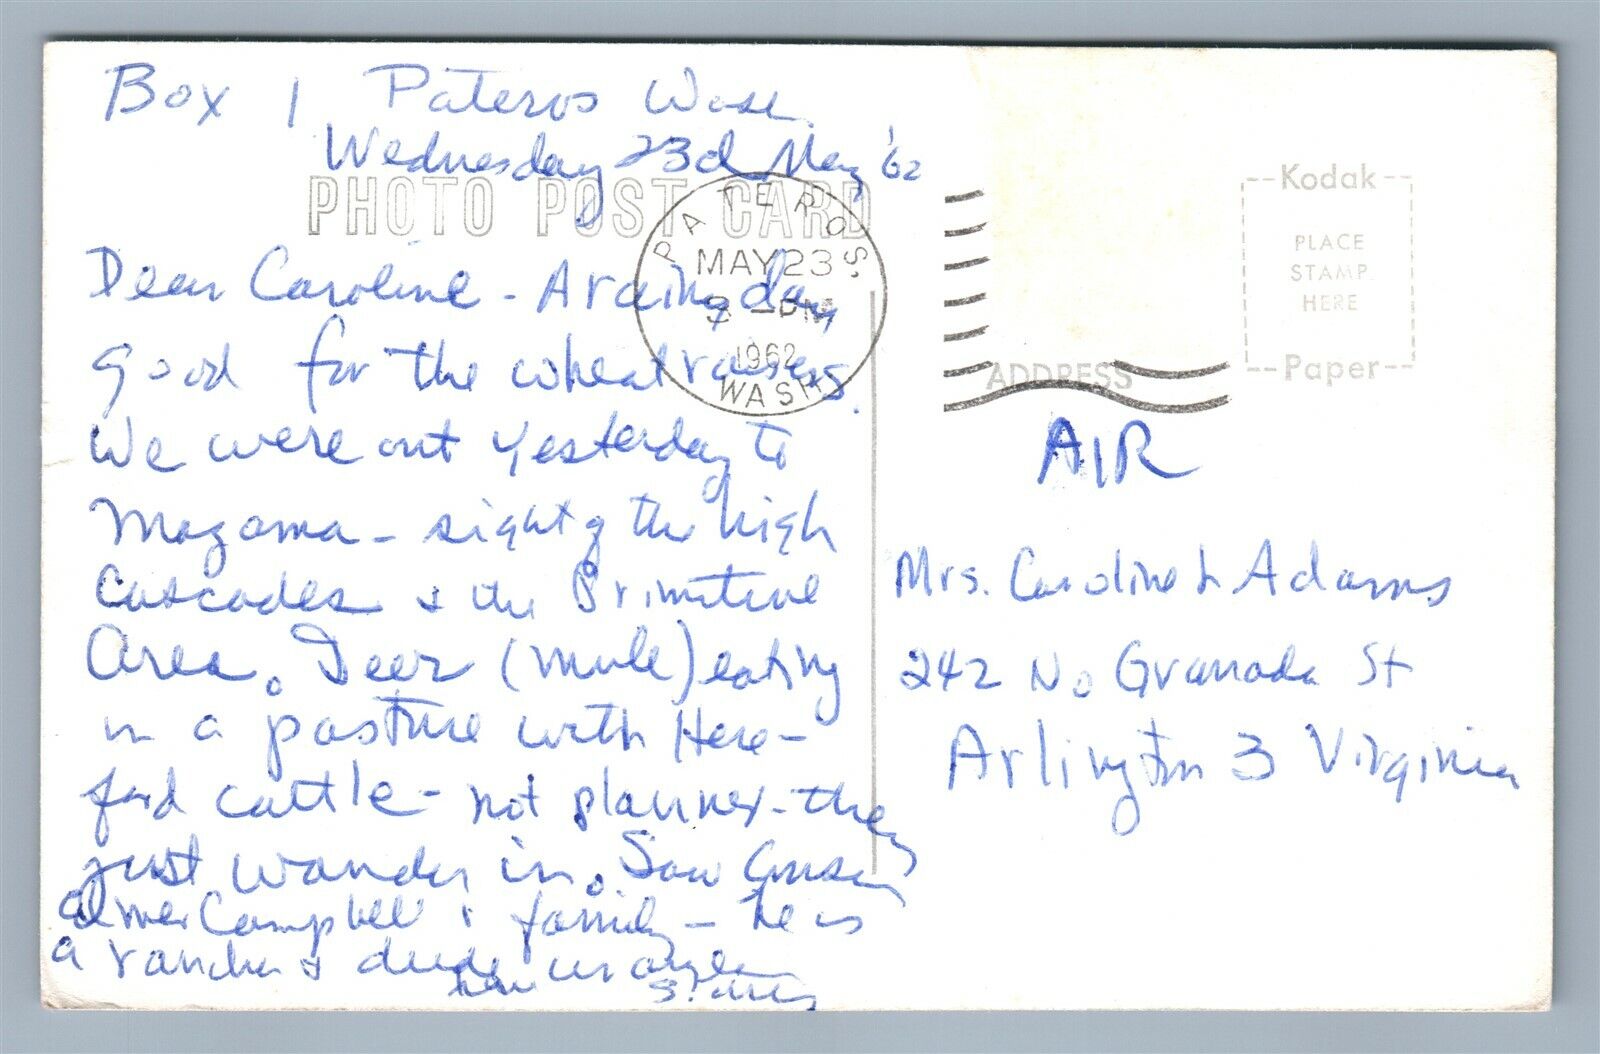 Box 1 Pateros Wash
Wednesday 23d May '62
PHOTO POST CARD
PATEROS.
MAY 23
3 - PM
1962
WASH.
Dear Caroline - A rainy day
good for the wheat raisers.
We were out yesterday to
Mazama - sight of the high
Cascades & the Primitive
Area. Deer (mule) eating
in a pasture with Here-
ford cattle - not planned - they
just wander in. Saw Cousin
Elmer Campbell & family - he is
a rancher & dude wrangler
--Kodak--
PLACE
STAMP
HERE
--Paper--
ADDRESS
AIR
Mrs. Caroline L Adams
242 No Granada St
Arlington 3 Virginia